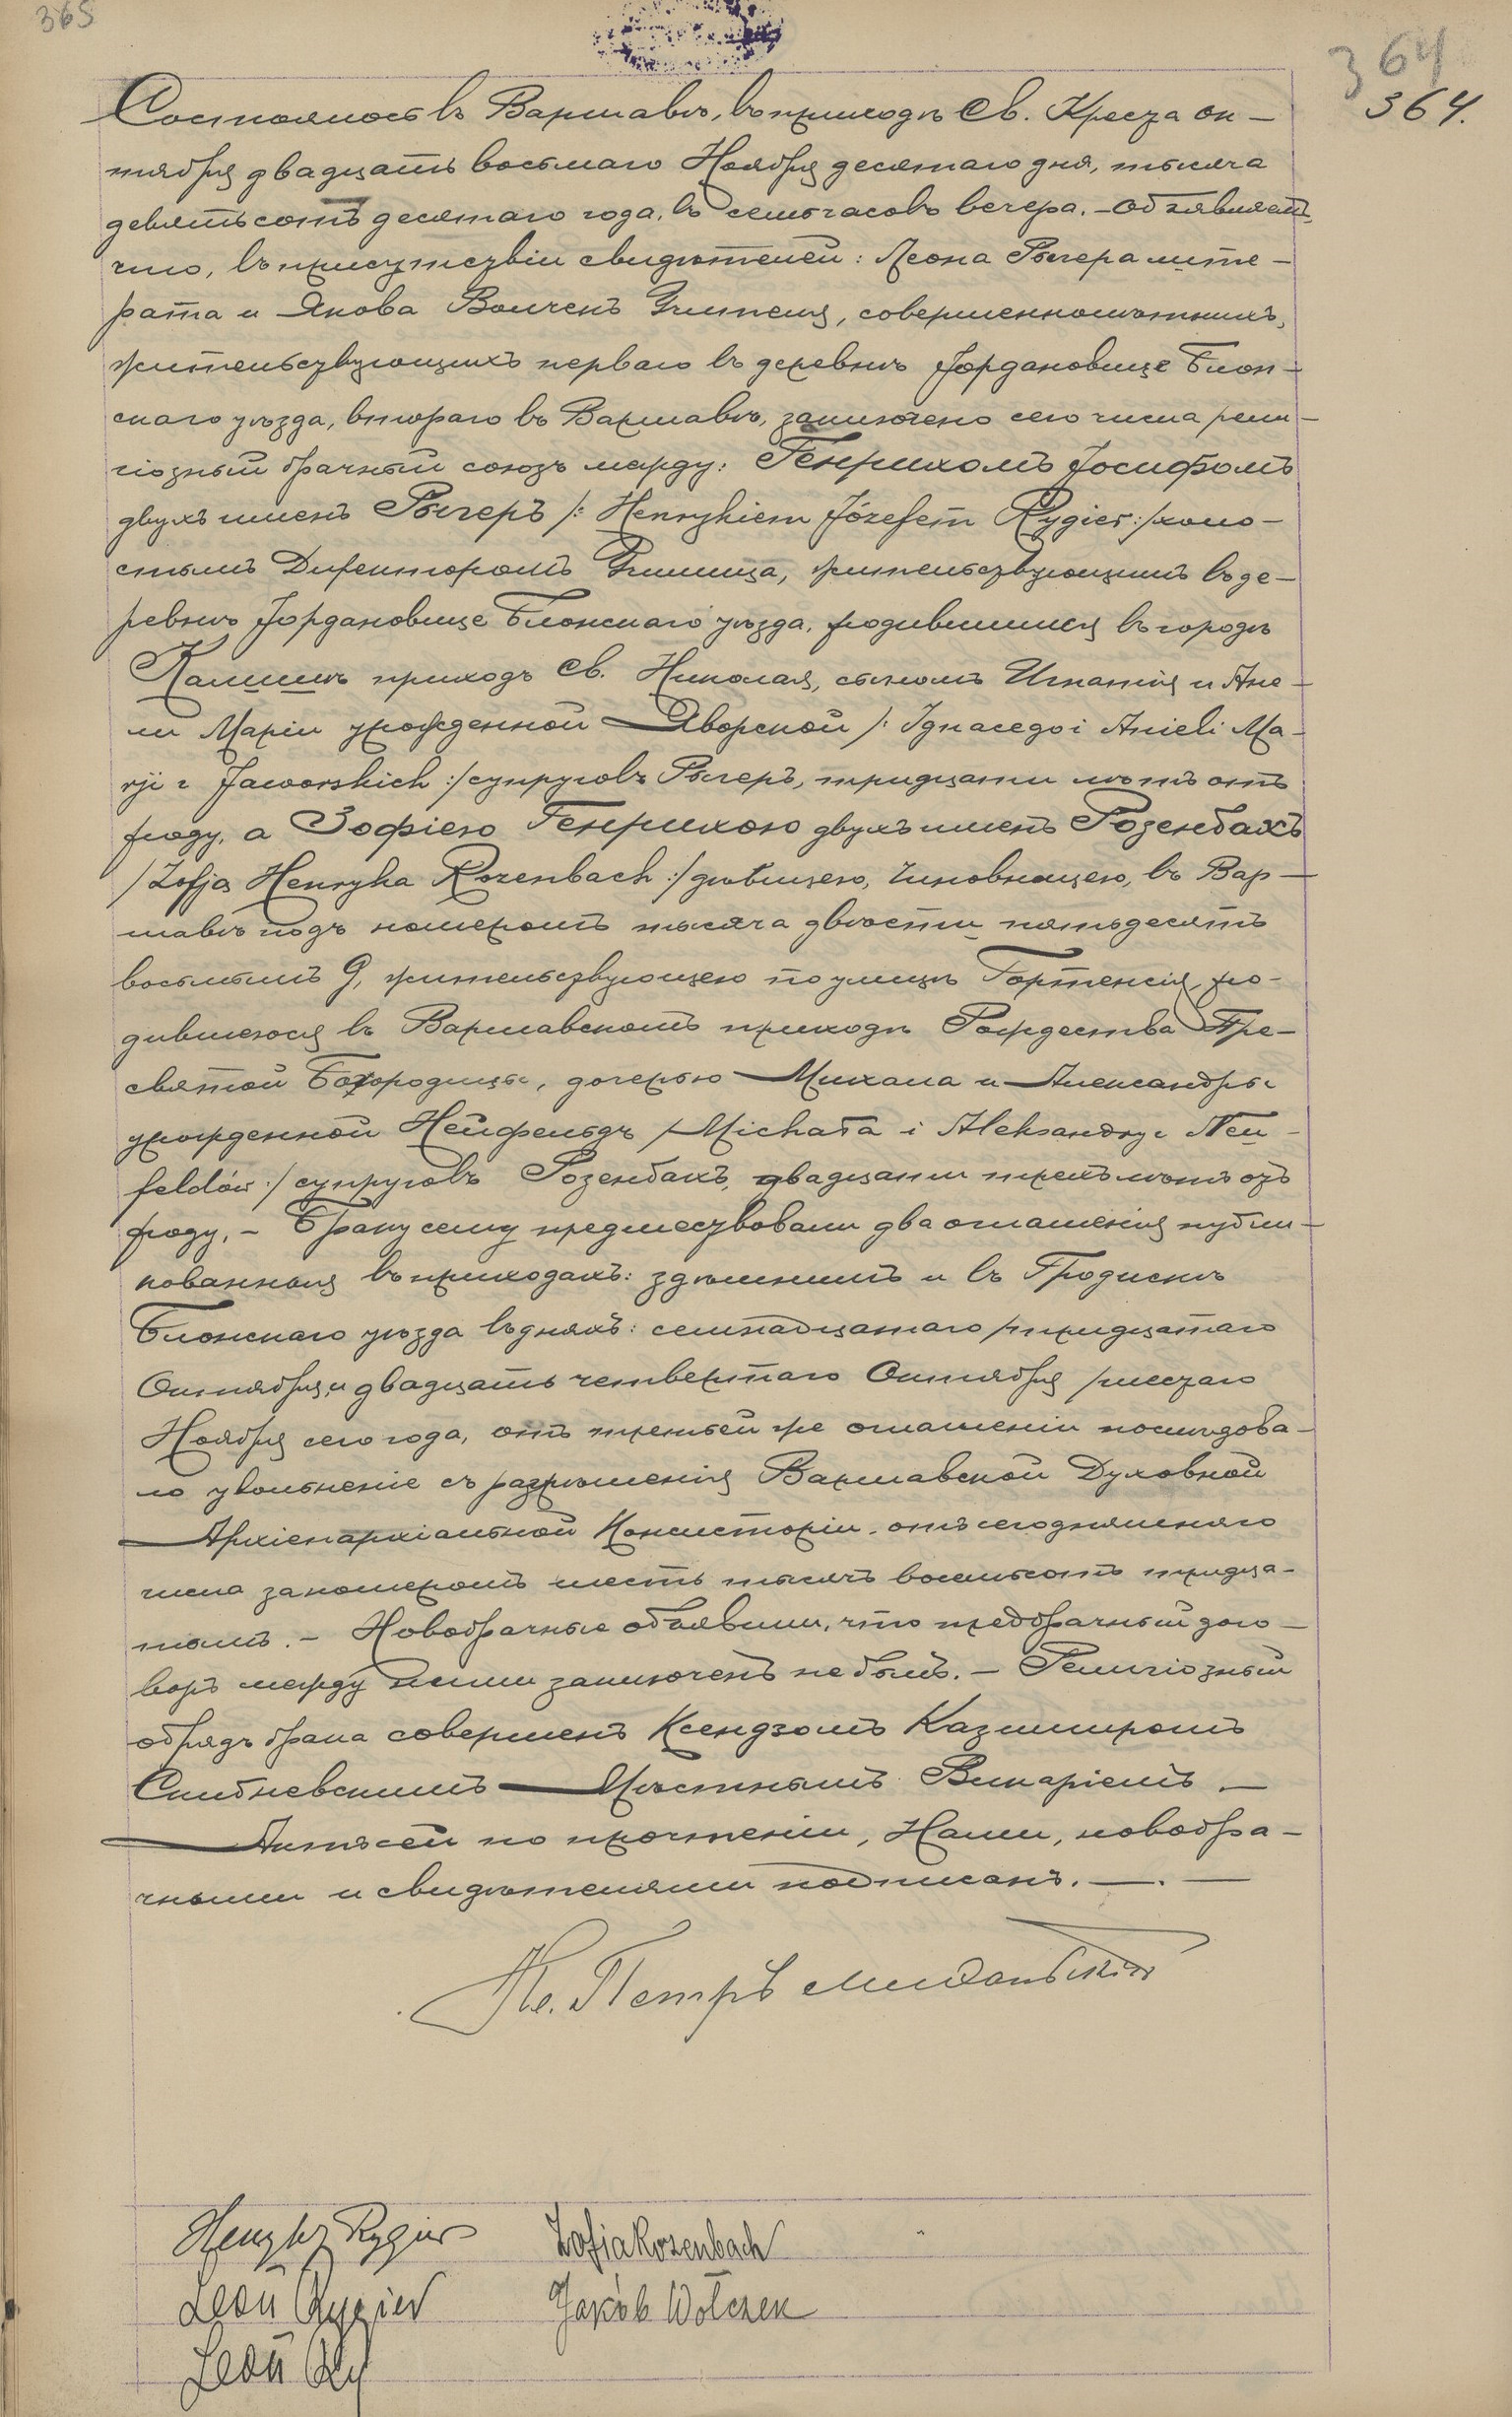 365
364
364.
Состоялось въ Варшавѣ, въ приходѣ Св. Креста ок-
тября двадцать восьмаго Ноября десятаго дня, тысяча
девятьсотъ десятаго года, въ семь часовъ вечера. - Объявляемъ,
что, въ присутствіи свидѣтелей: Леона Рыгера лите-
рата и Якова Волчекъ Учителя, совершеннолѣтнихъ,
жительствующихъ перваго въ деревнѣ Іордановице Блон-
скаго уѣзда, втораго въ Варшавѣ, заключено сего числа рели-
гіозный брачный союзъ между: Генрихомъ Іосифомъ
двухъ именъ Рыгеръ /: Henrykiem Józefem Rygier :/ холо-
стымъ Директоромъ Училища, жительствующимъ въ де-
ревнѣ Іордановице Блонскаго уѣзда, родившимися въ городѣ
Калишѣ приходѣ Св. Николая, сыномъ Игнатія и Ане-
ли Маріи урожденной Яворской /: Ignacego i Anieli Ma-
rji z Jaworskich :/ супруговъ Рыгеръ, тридцати лѣтъ отъ
роду, а Зофіею Генрихою двухъ именъ Розенбахъ
/ Zofja Henryka Rozenbach :/ дѣвицею, Чиновницею, въ Вар-
шавѣ подъ номеромъ тысяча двѣсти пятьдесятъ
восьмымъ 9, жительствующею по улицѣ Гортенсія, ро-
дившеюся въ Варшавскомъ приходѣ Рождества Пре-
святой Богородицы, дочерью Михала и Александры
урожденной Нейфельдъ / Michała i Aleksandry z Neu-
feldów :/ супруговъ Розенбахъ, двадцати трехъ лѣтъ отъ
роду. - Браку сему предшествовали два оглашенія публи-
кованныя въ приходахъ: здѣшнемъ и въ Гродискѣ
Блонскаго уѣзда въ дняхъ: семнадцатаго /тридцатаго
Октября, и двадцать четвертаго Октября /шестаго
Ноября сего года, отъ третьей же оглашеніи послѣдова-
ло увольненіе съ разрѣшенія Варшавской Духовной
Архіепархіальной Консисторіи отъ сегодняшняго
числа за номеромъ шесть тысячъ восемьсотъ тридца-
тымъ. - Новобрачные объявили, что предбрачный дого-
воръ между ними заключенъ не былъ. - Религіозный
обрядъ брака совершенъ Ксендзомъ Казимиромъ
Скибневскимъ Мѣстнымъ Викаріемъ. -
Актъ сей по прочтеніи, Нами, новобра-
чными и свидѣтелями подписанъ. - . -
Кс. Петръ
Henryk Rygier Zofia Rozenbach
Leon Rygier Jakób Wołczek
Leon Ry